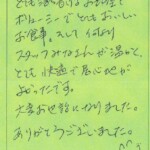 ボリューミーでとてもおいしい
お食事。そして何より
スタッフみなさんが温かく、
とても快適で居心地が
よかったです。
大変お世話になりました。
ありがとうございました。